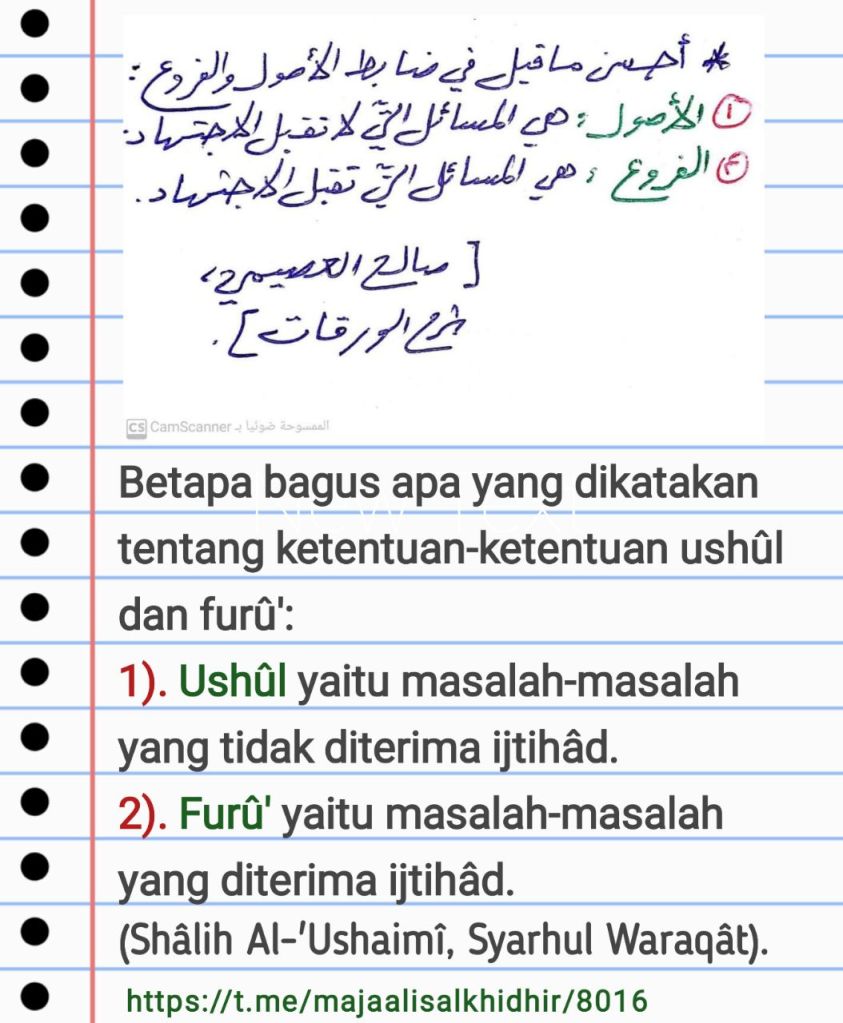 * أحسن ما قيل في ضابط الأصول والفروع:
① الأصول: هي المسائل التي لا تقبل الاجتهاد.
② الفروع: هي المسائل التي تقبل الاجتهاد.
[صالح العصيمي،
شرح الورقات].
CS CamScanner الممسوحة ضوئيا بـ
Betapa bagus apa yang dikatakan
tentang ketentuan-ketentuan ushûl
dan furû':
1). Ushûl yaitu masalah-masalah
yang tidak diterima ijtihâd.
2). Furû' yaitu masalah-masalah
yang diterima ijtihâd.
(Shâlih Al-'Ushaimî, Syarhul Waraqât).
https://t.me/majaalisalkhidhir/8016